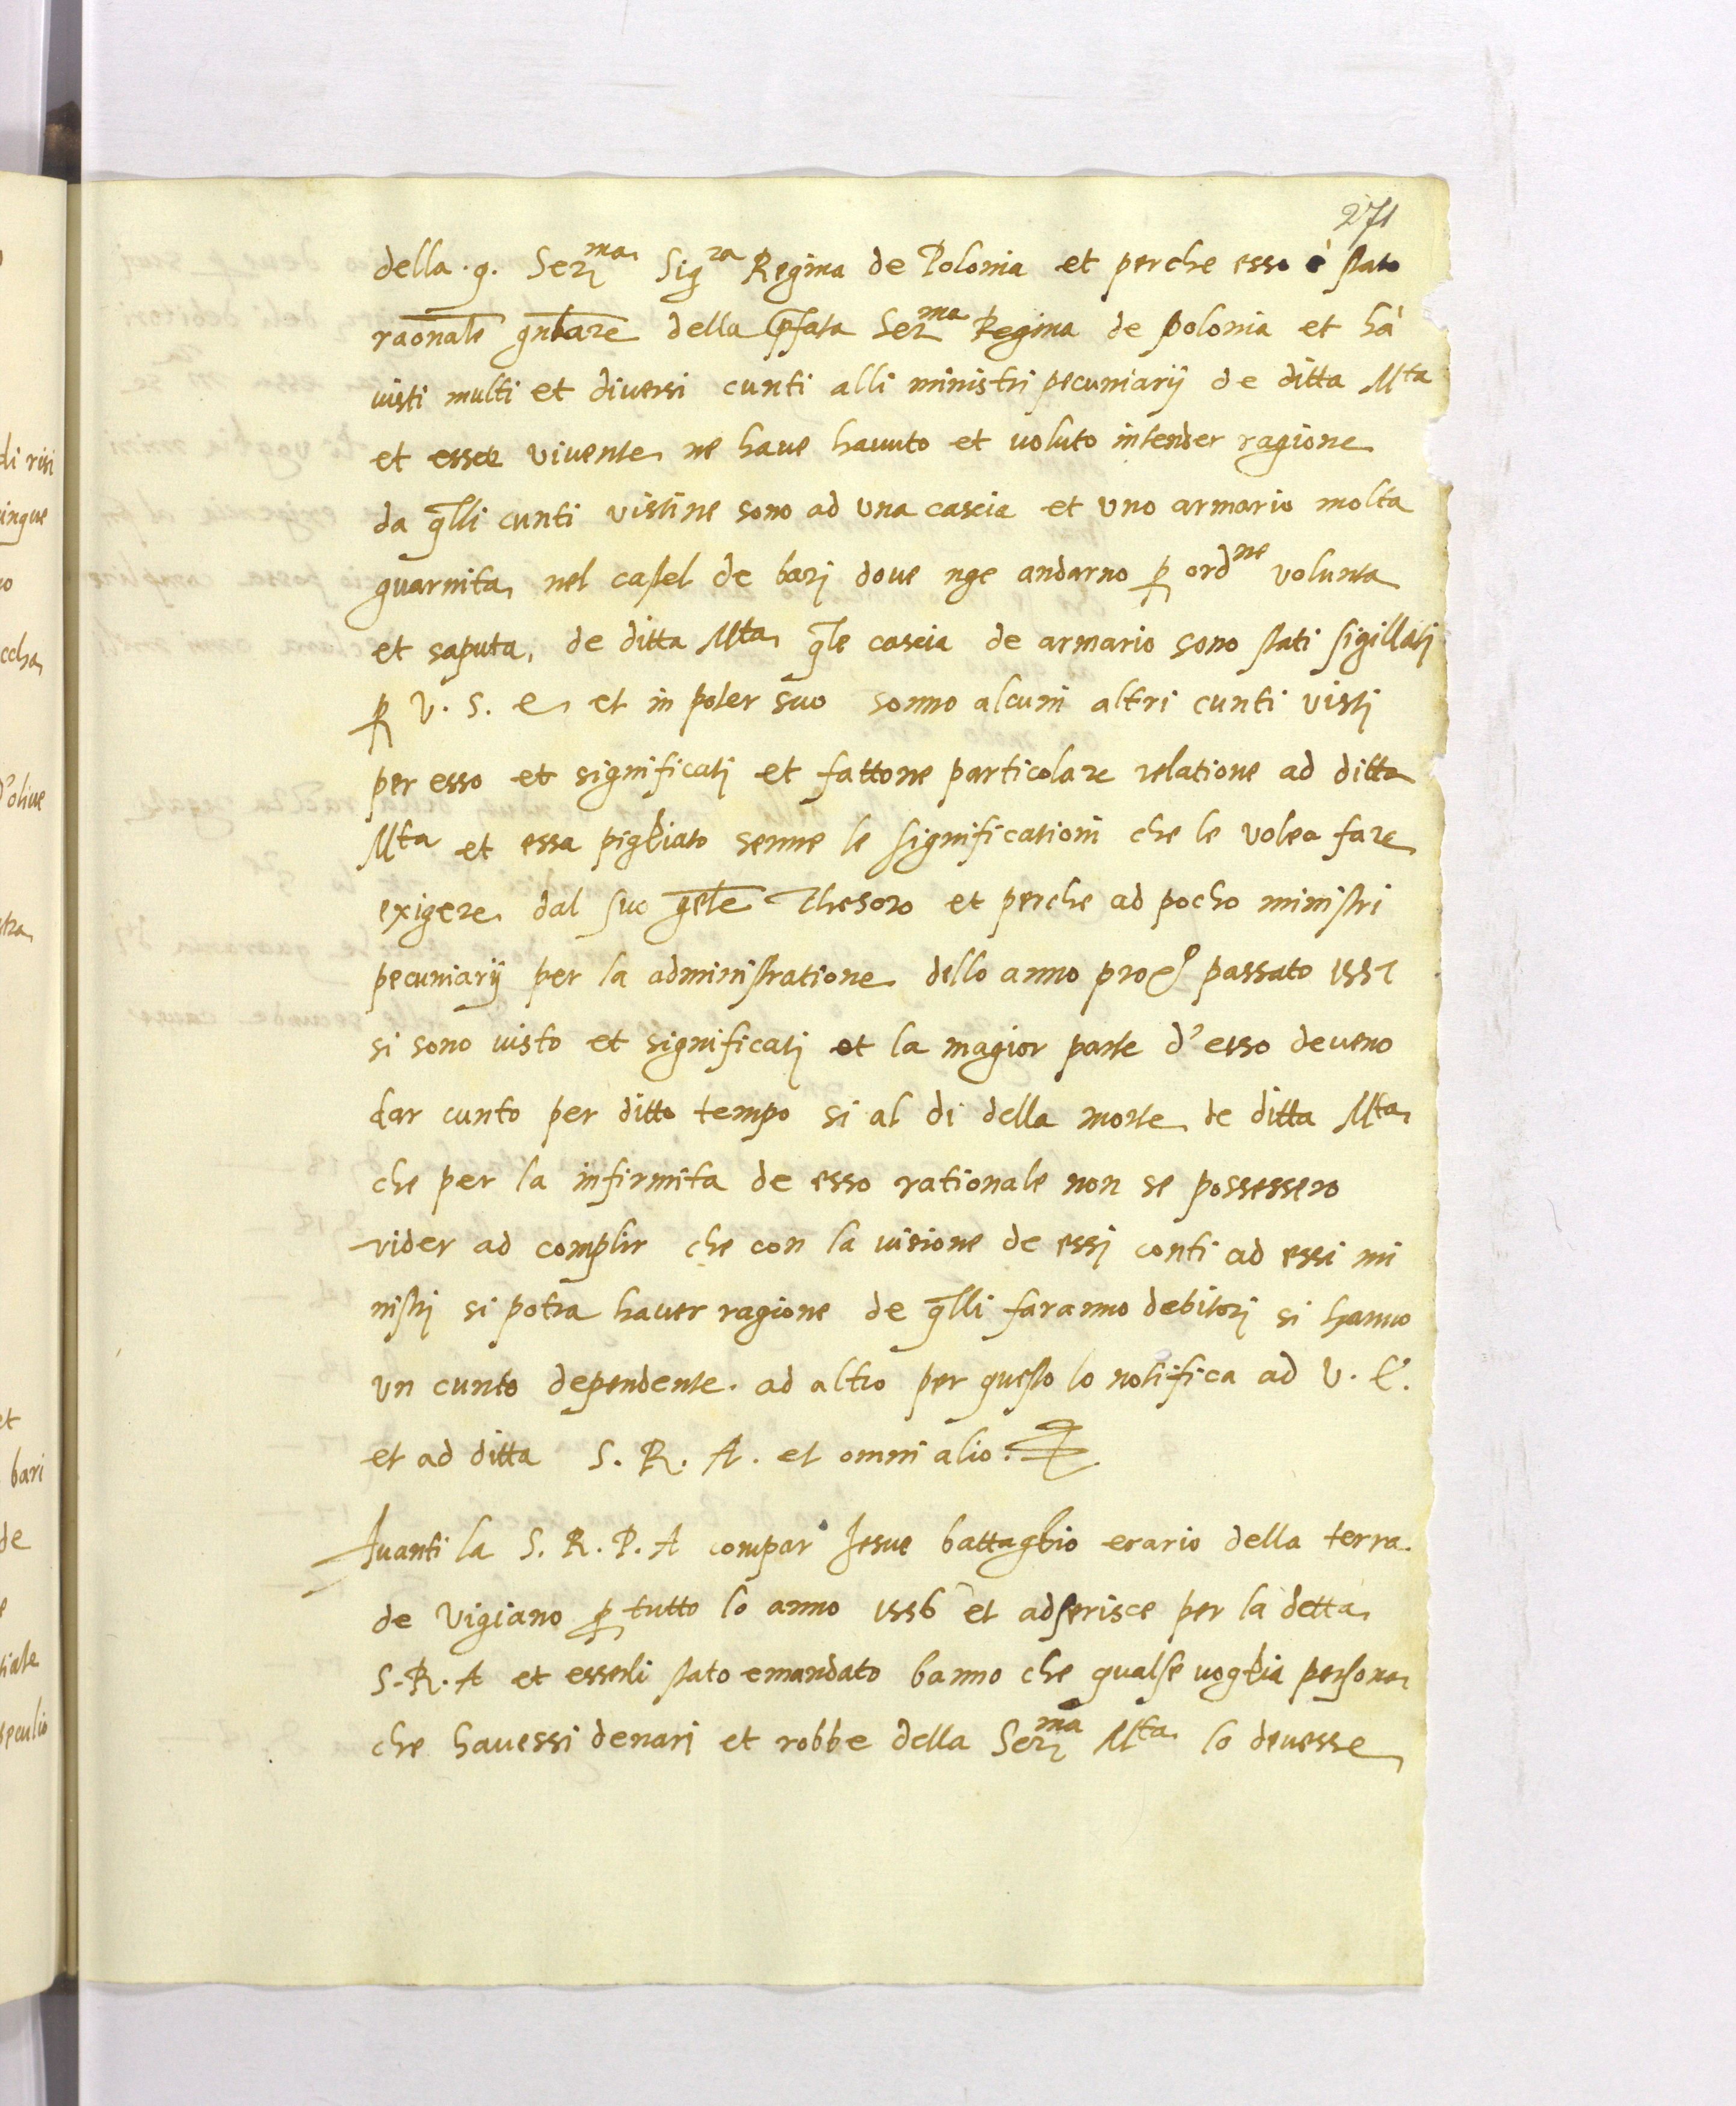 271
della .q. Ser.ma Sig.ra Regina de Polonia et perche esso è stato
raonale gnlare della pfata Ser.ma Regina de polonia et hà
visti multi et diversi cunti alli ministri pecuniarij de ditta Mta
et essa vivente ne have havuto et voluto intender ragione
da qlli cunti vistine sono ad una cascia et uno armario molta
guarnita nel castel de barj dove nge andarno p ordne volunta
et saputa, de ditta Mta qle cascia de armario sono stati sigillatj
p V. S. e et in poter suo sonno alcuni altri cunti vistj
per esso et significatj et fattone particolare relatione ad ditta
Mta et essa pigliato senne le significationi che le volea fare
exigere dal suo gnle Thesoro et perche ad pocho ministri
pecuniarij per la administratione dello anno pro.o passato 1557
si sono visto et significatj et la magior parte d'esso deveno
dar cunto per ditto tempo si al di della morte de ditta Mta
che per la infirmita de esso rationale non se possessero
vider ad complir che con la visione de essj conti ad essi mi
nistrj si potra haver ragione de qlli faranno debitorj si hanno
un cunto dependente. ad altro per questo lo notifica ad V. E.
et ad ditta S. R. A. et omni alio.
Avanti la S. R. P. A compar Jesue battaglio erario della terra
de Vigiano p tutto lo anno 1556 et adserisce per la detta
S. R. A et esserli stato emandato banno che qualse voglia persona
che havessi denari et robbe della Ser.ma Mta lo devesse
di risi
ingue
o
ccha
d'olive
tra
et
bari
de
e
tiale
peculio